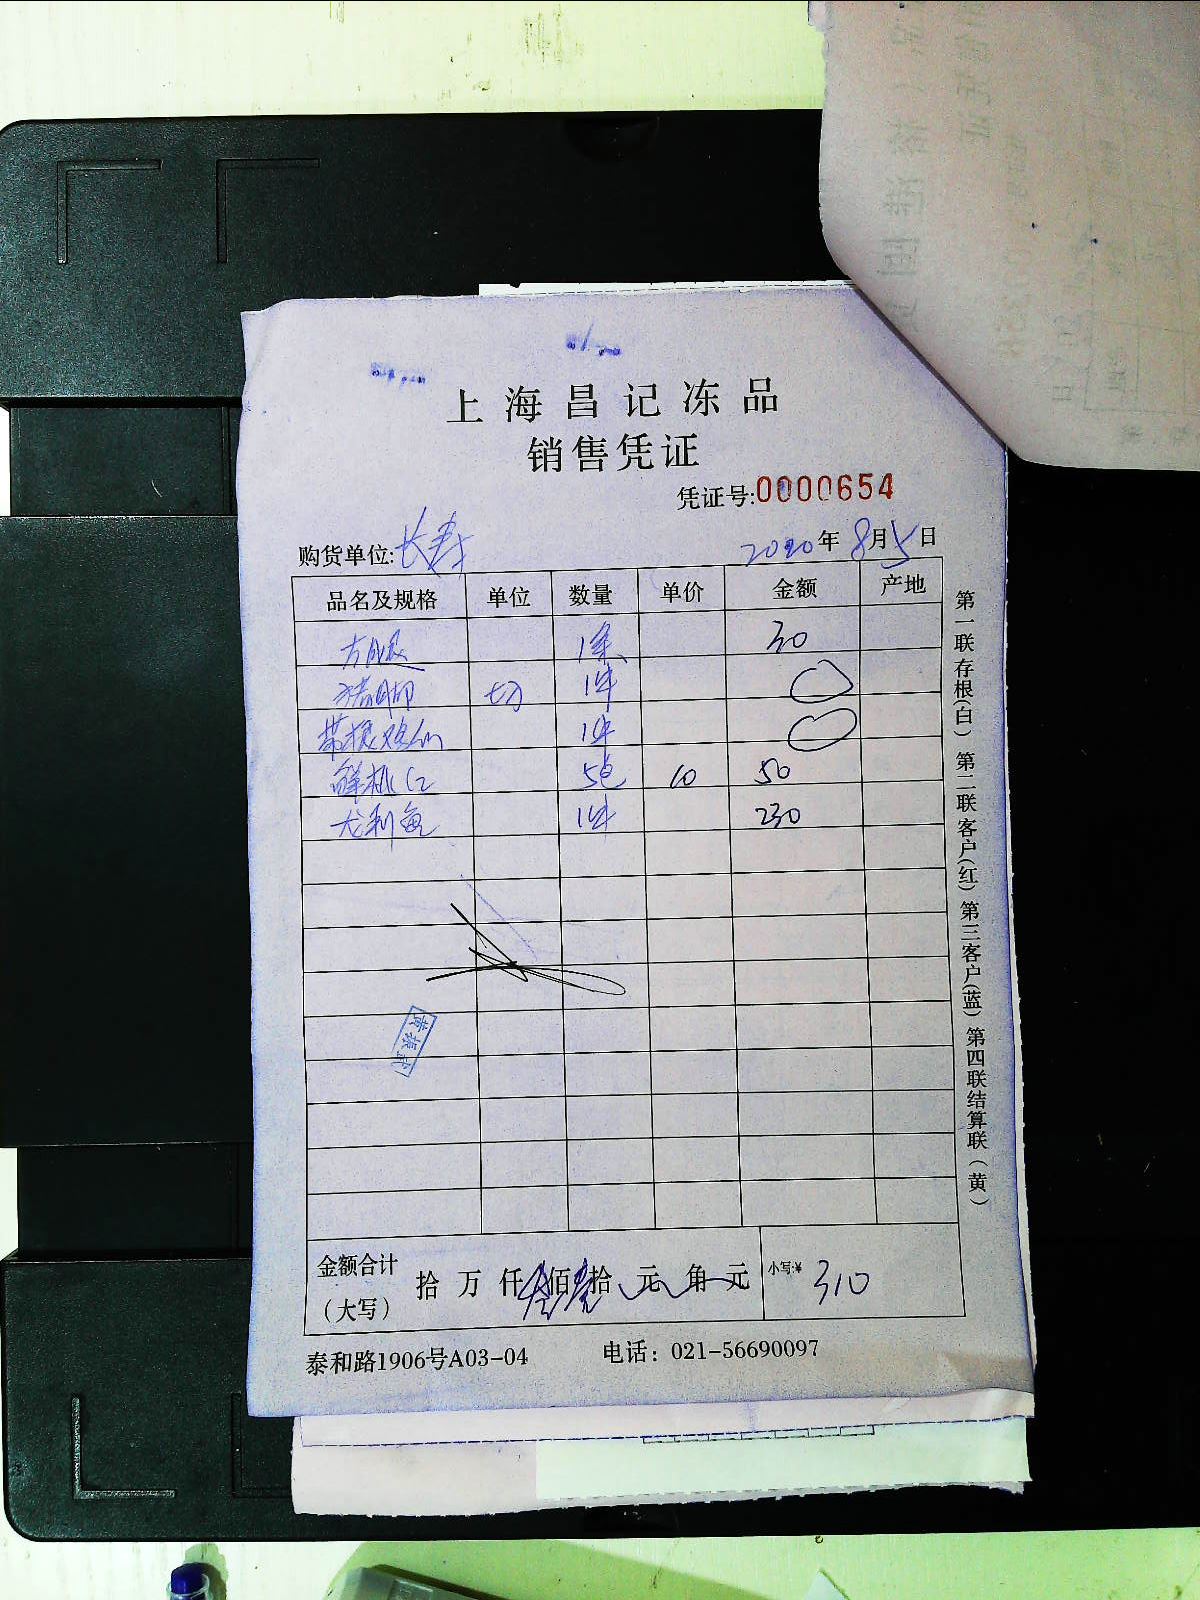 上海昌记冻品
销售凭证
凭证号:0000654
购货单位:长寿 2020年8月5日
品名及规格 单位 数量 单价 金额 产地
方腿 1条 30
猪脚 切 1件
带根 1件
鲜桃仁 5包 10 50
龙利鱼 1件 230
黄振武
金额合计
(大写) 拾 万 仟 叁佰 壹拾 元 角 元 小写:¥ 310
泰和路1906号A03-04 电话: 021-56690097
第一联存根(白) 第二联客户(红) 第三客户(蓝) 第四联结算联(黄)